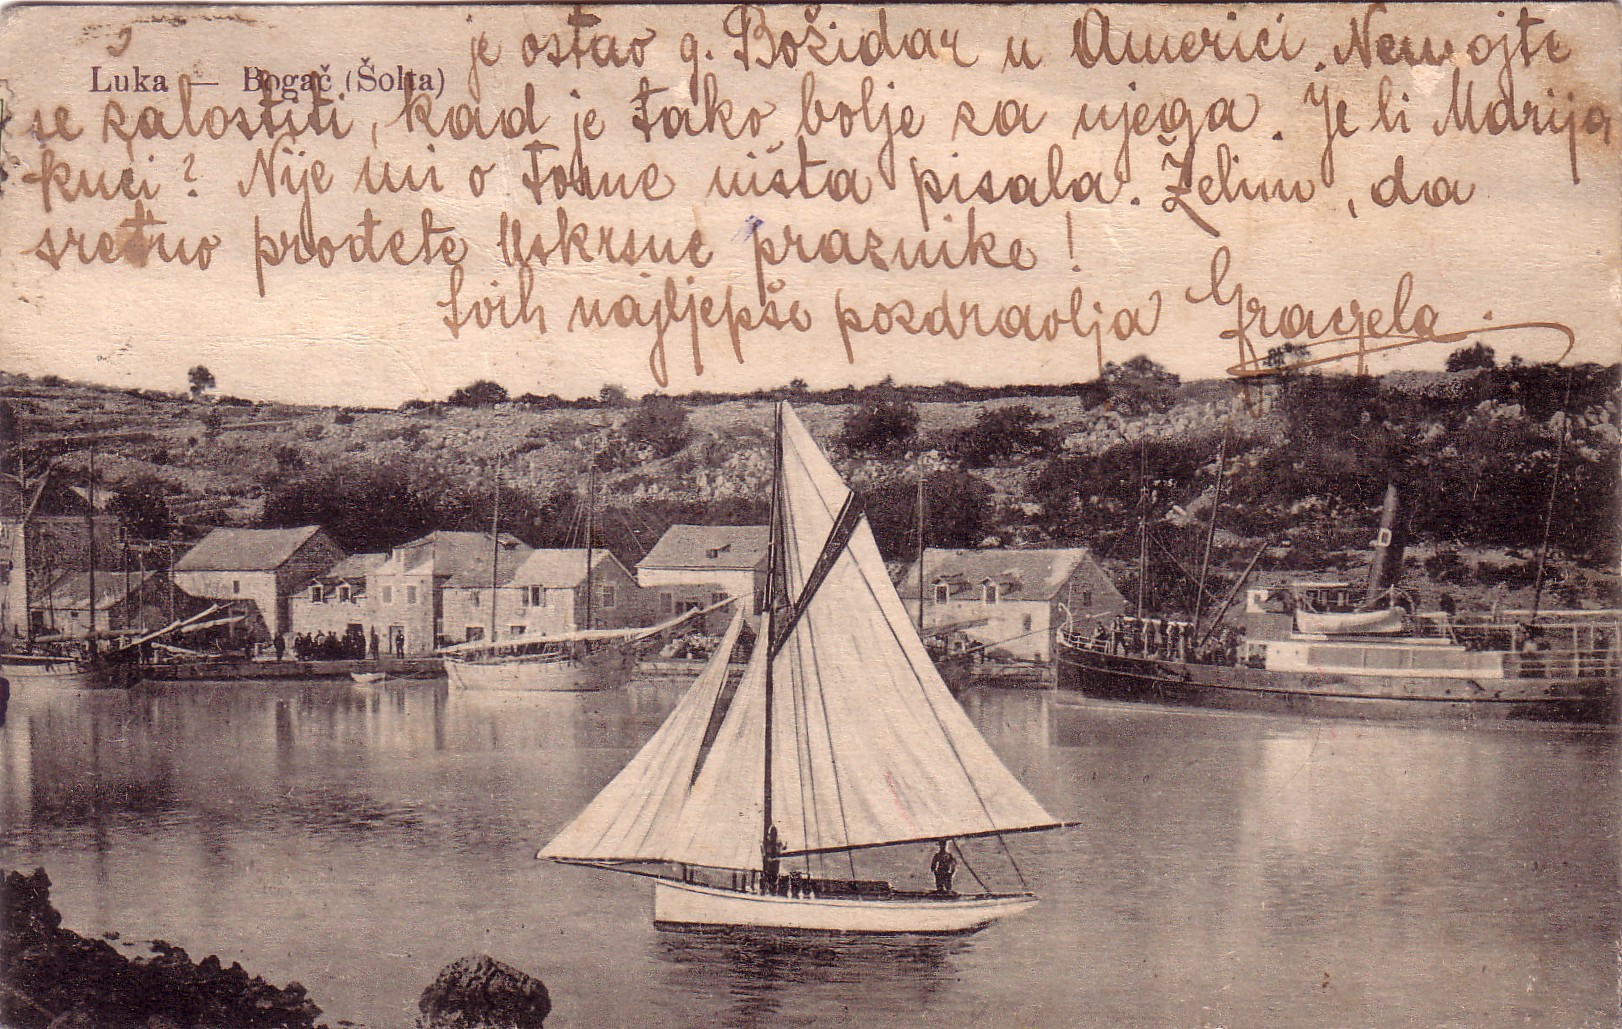 je ostao g. Božidar u Americi. Nemojte
Luka — Bogač (Šolta)
se žalostiti, kad je tako bolje za njega. Je li Marija
kući? Nije mi o tome ništa pisala. Želim, da
sretno prođete Uskrsne praznike!
Svih najljepše pozdravlja